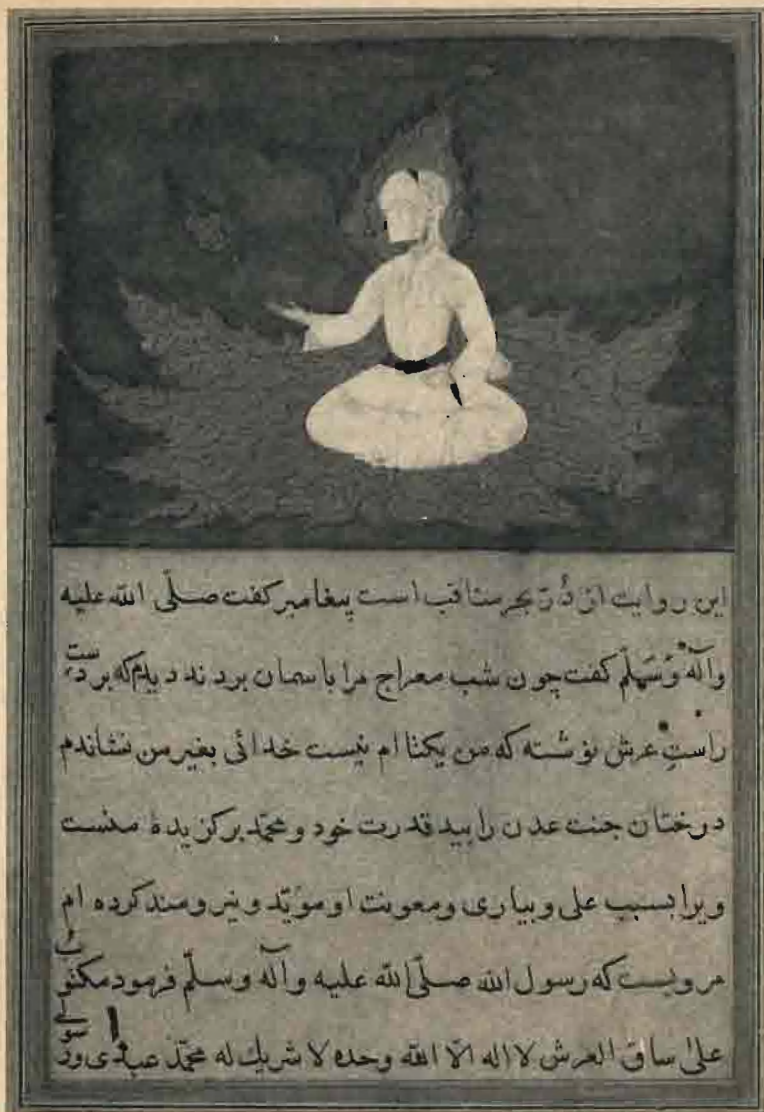 این روایت از دُرّ بحر مناقب است پیغامبر کفت صلّی الله علیه
وآله وَسَلّم کفت چون شب معراج مرا باسمان بردند دیدم که بر دست
راستِ عرش نوشته که من یکتا ام نیست خدائی بغیر من نشاندم
درختان جنت عدن را بید قدرت خود و محمّد برکزیدهٔ منست
ویرا بسبب علی و بیاری و معونت او مؤیّد و نیرومند کرده ام
مرویست که رسول الله صلّی الله علیه وآله وسلّم فرمود مکتوبٌ
علیٰ ساق العرش لا اله الّا الله وحده لا شریك له محمّد عبدی ورسولی